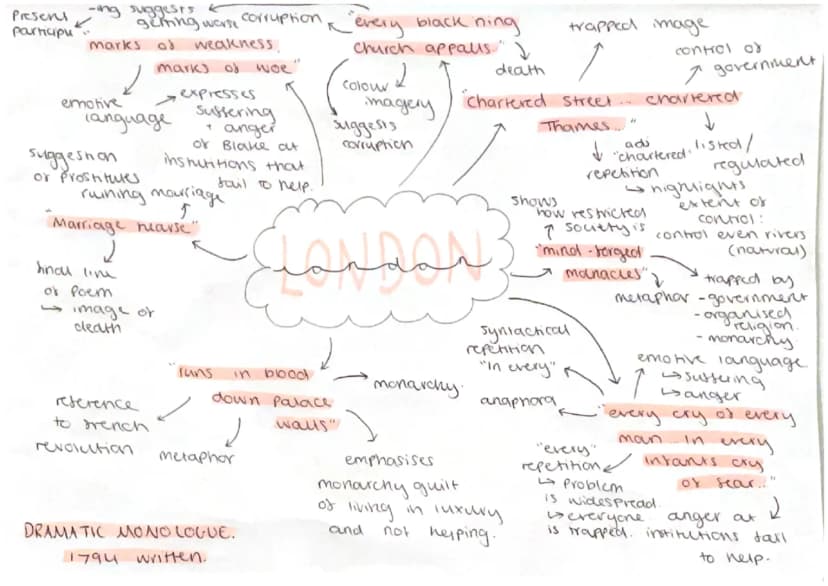 Present participle
-ing suggests getting worse
corruption
"every black'ning
church appalls"
death
colour
imagery
suggests
corruption
"marks of weakness,
marks of woe"
emotive
language
expresses
suffering
+ anger
of Blake at
institutions that
fail to help.
trapped image
control of
government
"chartered street... chartered
Thames..."
adj
"chartered"
repetition
↳ highlights
extent of
control:
control even rivers
(natural)
listed/
regulated
suggestion
of prostitutes
ruining marriage
"Marriage hearse"
final line
of poem
↳ image of
death
LONDON
London
shows
how restricted
society is
"mind-forged
manacles"
metaphor
trapped by
- government
- organised
religion.
- monarchy
"runs in blood
down palace
walls"
monarchy.
reference
to french
revolution
metaphor
emphasises
monarchy guilt
of living in luxury
and not helping.
syntactical
repetition
"In every"
anaphora
emotive language
↳ suffering
↳ anger
"every cry of every
man in every
infants cry
of fear..."
"every"
repetition
↳ problem
is widespread.
↳ everyone
is trapped.
anger at
institutions fail
to help.
DRAMATIC MONOLOGUE.
1794 written.